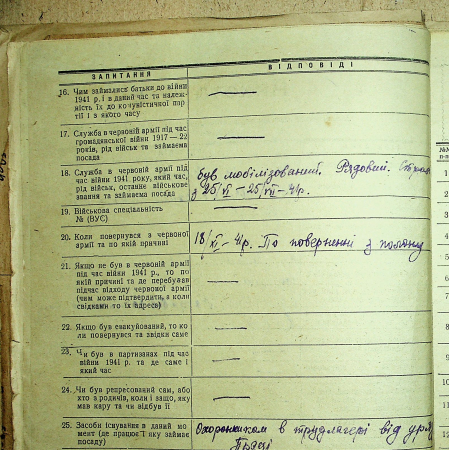 ЗАПИТАННЯ
ВІДПОВІДІ
16. Чим займалися батьки до війни
1941 р. і в даний час та належ-
ність їх до комуністичної пар-
тії і з якого часу
17. Служба в червоній армії під час
громадянської війни 1917—22
років, рід військ та займаєма
посада
18. Служба в червоній армії під
час війни 1941 року, який час,
рід військ, останнє військове
звання та займаєма посада
був мобілізований. Рядовий.
з 25/VI – 25/VII – 41р.
19. Військова спеціяльність
№ (ВУС)
20. Коли повернувся з червоної
армії та по якій причині
18/XI – 41р. По поверненні з полону
21. Якщо не був в червоній армії
під час війни 1941 р., то по
якій причині та де перебував
підчас відходу червоної армії
(чим може підтвердити, а коли
свідками то їх адреса)
22. Якщо був евакуйований, то ко-
ли повернувся та звідки саме
23. Чи був в партизанах під час
війни 1941 р. та де саме і
який час
24. Чи був репресований сам, або
хто з родичів, коли і защо, яку
мав кару та чи відбув її
25. Засоби існування в даний мо-
мент (де працює і яку займає
посаду)
Охоронником в трудлагері від
Праці